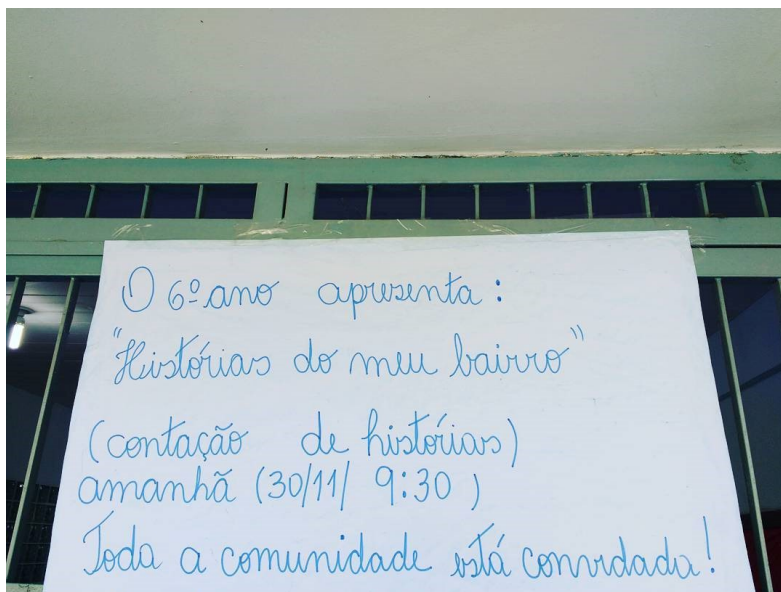 O 6º ano apresenta:
"Histórias do meu bairro"
(contação de histórias)
amanhã (30/11/ 9:30)
Toda a comunidade está convidada!